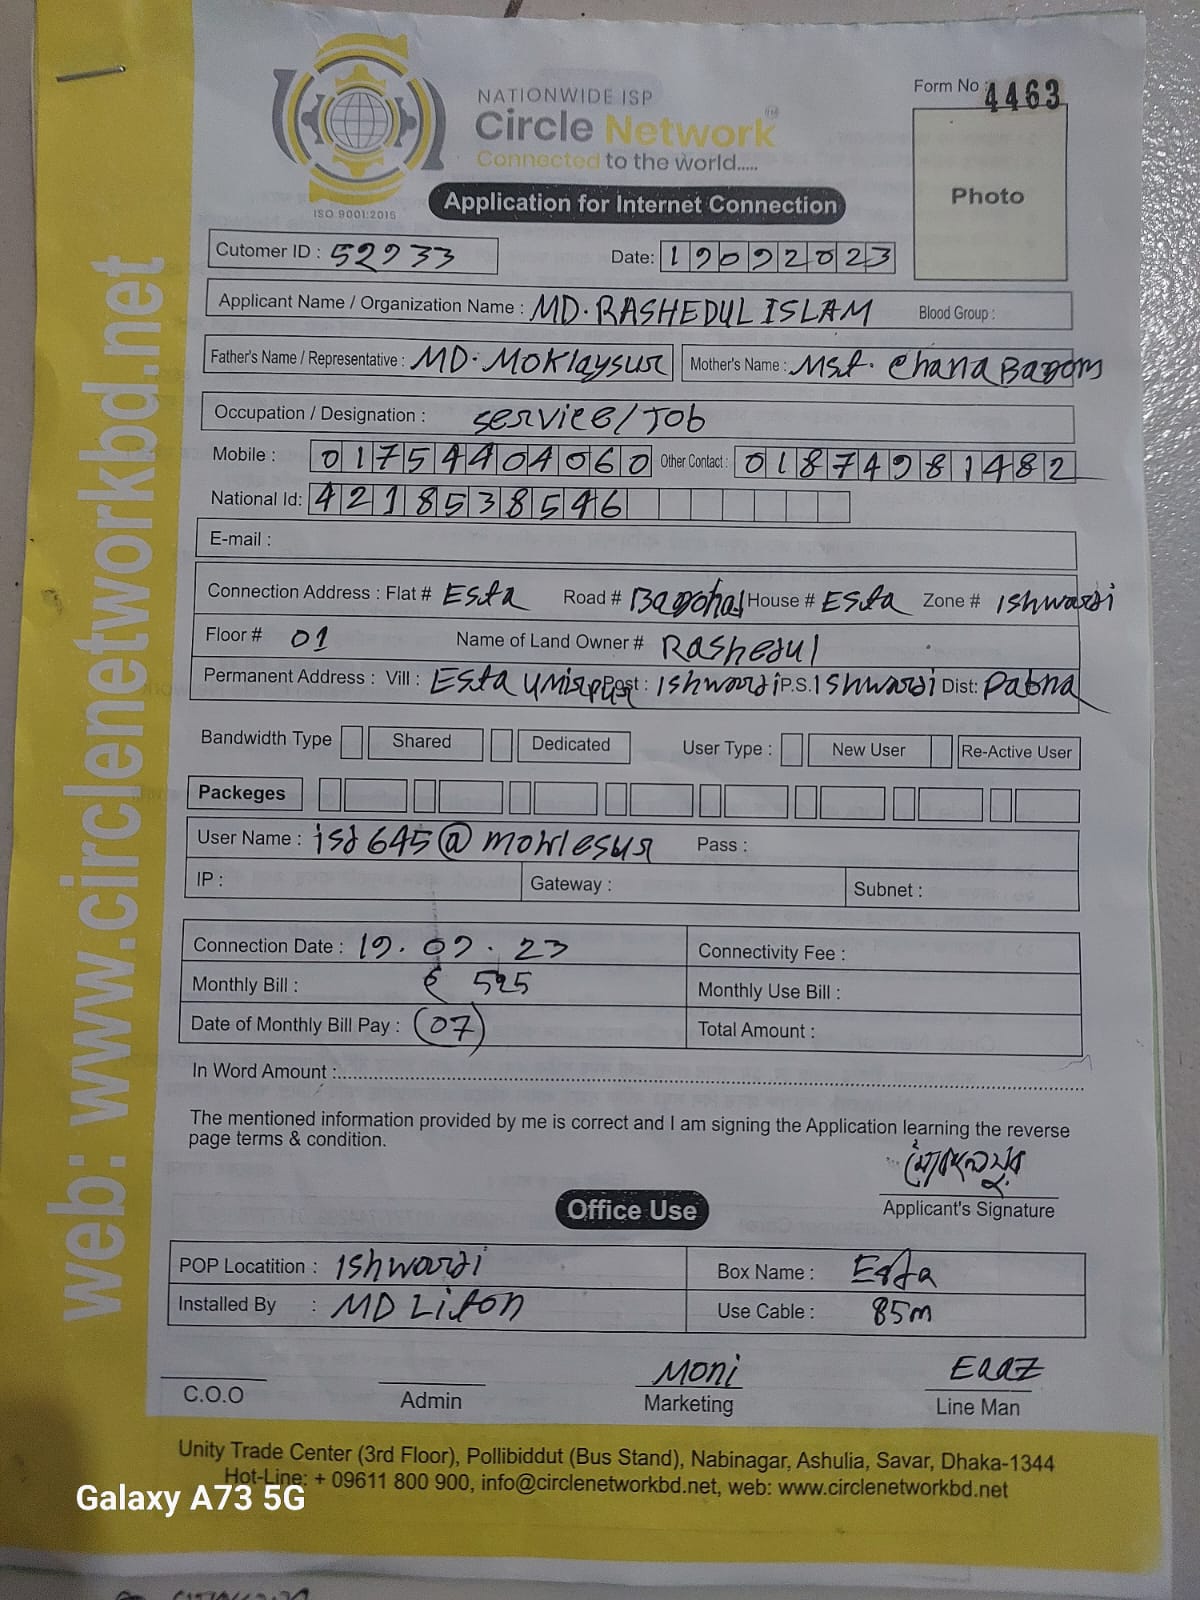 NATIONWIDE ISP
Circle Network
Connected to the world.....
ISO 9001:2015
Form No 4463
Photo
Application for Internet Connection
Cutomer ID : 52933
Date: 19092023
Applicant Name / Organization Name : MD. RASHEDUL ISLAM Blood Group :
Father's Name / Representative : MD. MOKlaysur Mother's Name : Mst. Chana Bagom
Occupation / Designation : service/Job
Mobile : 01754404060 Other Contact : 01874981482
National Id: 4218538546
E-mail :
Connection Address : Flat # Esta Road # House # Esta Zone # Ishwardi
Floor # 01 Name of Land Owner # Rashedul
Permanent Address : Vill : Esta Post : Ishwardi P.S. Ishwardi Dist: Pabna
Bandwidth Type Shared Dedicated User Type : New User Re-Active User
Packeges
User Name : isd645@mowlesur Pass :
IP : Gateway : Subnet :
Connection Date : 19.09.23 Connectivity Fee :
Monthly Bill : 525 Monthly Use Bill :
Date of Monthly Bill Pay : (07) Total Amount :
In Word Amount :
The mentioned information provided by me is correct and I am signing the Application learning the reverse
page terms & condition.
Applicant's Signature
Office Use
POP Locatition : Ishwardi Box Name : Esta
Installed By : MD Liton Use Cable : 85m
Moni
C.O.O Admin Marketing Line Man
Unity Trade Center (3rd Floor), Pollibiddut (Bus Stand), Nabinagar, Ashulia, Savar, Dhaka-1344
Hot-Line: + 09611 800 900, info@circlenetworkbd.net, web: www.circlenetworkbd.net
web: www.circlenetworkbd.net
Galaxy A73 5G